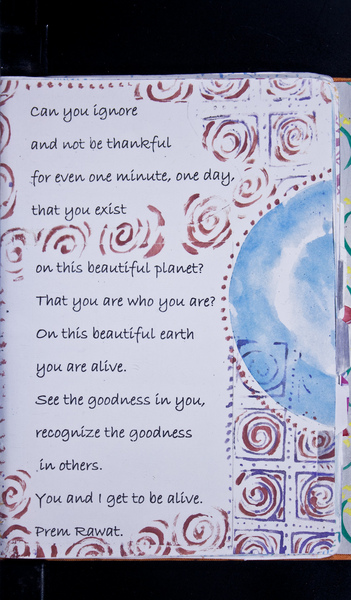 Can you ignore
and not be thankful
for even one minute, one day,
that you exist
on this beautiful planet?
That you are who you are?
On this beautiful earth
you are alive.
See the goodness in you,
recognize the goodness
in others.
You and I get to be alive.
Prem Rawat.